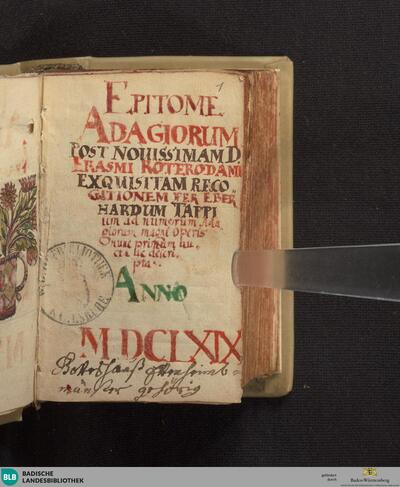 1
EPITOME
ADAGIORUM
POST NOUISSIMAM D.
ERASMI ROTERODAMI
EXQUISITAM RECO
GNITIONEM PER EBER
HARDUM TAPPI
um ad numerum Ada
giorum magni Operis
nunc primum
ANNO
MDCLXIX
BIBLIOTHECA
KARLSRUHE
gehörig
BLB BADISCHE
LANDESBIBLIOTHEK
gefördert
durch
Baden-Württemberg